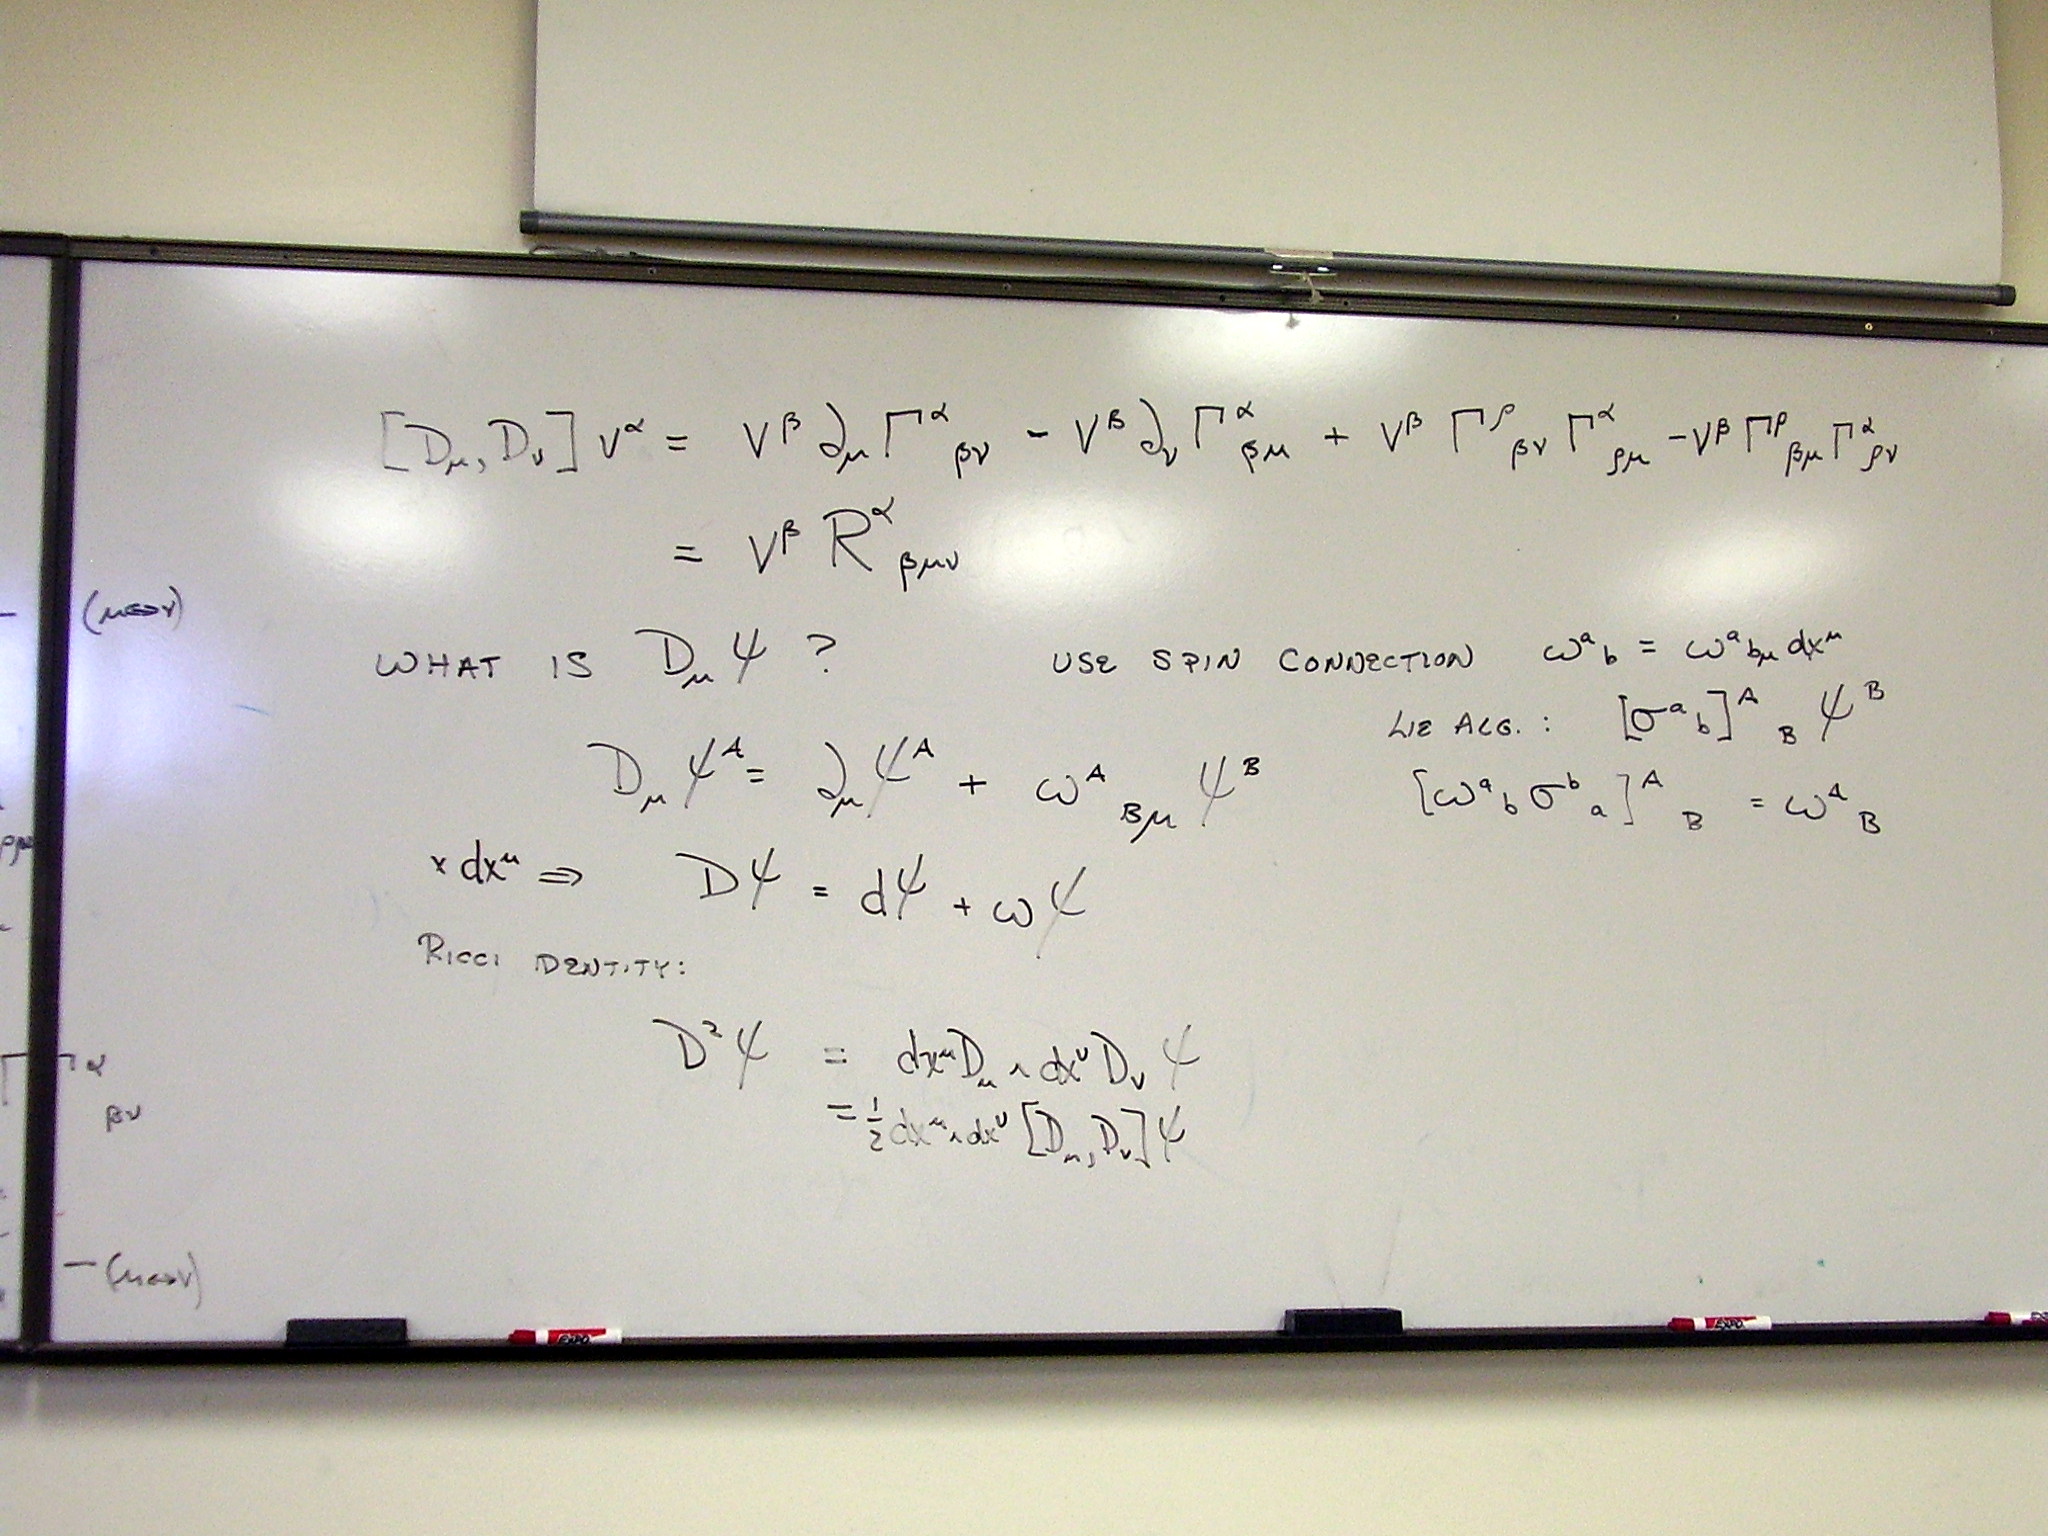 [D_μ, D_ν] V^α = V^β ∂_μ Γ^α_βν - V^β ∂_ν Γ^α_βμ + V^β Γ^ρ_βν Γ^α_ρμ - V^β Γ^ρ_βμ Γ^α_ρν
= V^β R^α_βμν
(μ↔ν)
WHAT IS D_μ ψ ? USE SPIN CONNECTION ω^a_b = ω^a_bμ dx^μ
LIE ALG. : [σ^a_b]^A_B ψ^B
D_μ ψ^A = ∂_μ ψ^A + ω^A_Bμ ψ^B
[ω^a_b σ^b_a]^A_B = ω^A_B
x dx^μ ⇒ Dψ = dψ + ωψ
RICCI IDENTITY:
D²ψ = dx^μ D_μ ∧ dx^ν D_ν ψ
= 1/2 dx^μ ∧ dx^ν [D_μ, D_ν] ψ
Γ^α_βν
- (μ↔ν)
EXPO
EXPO